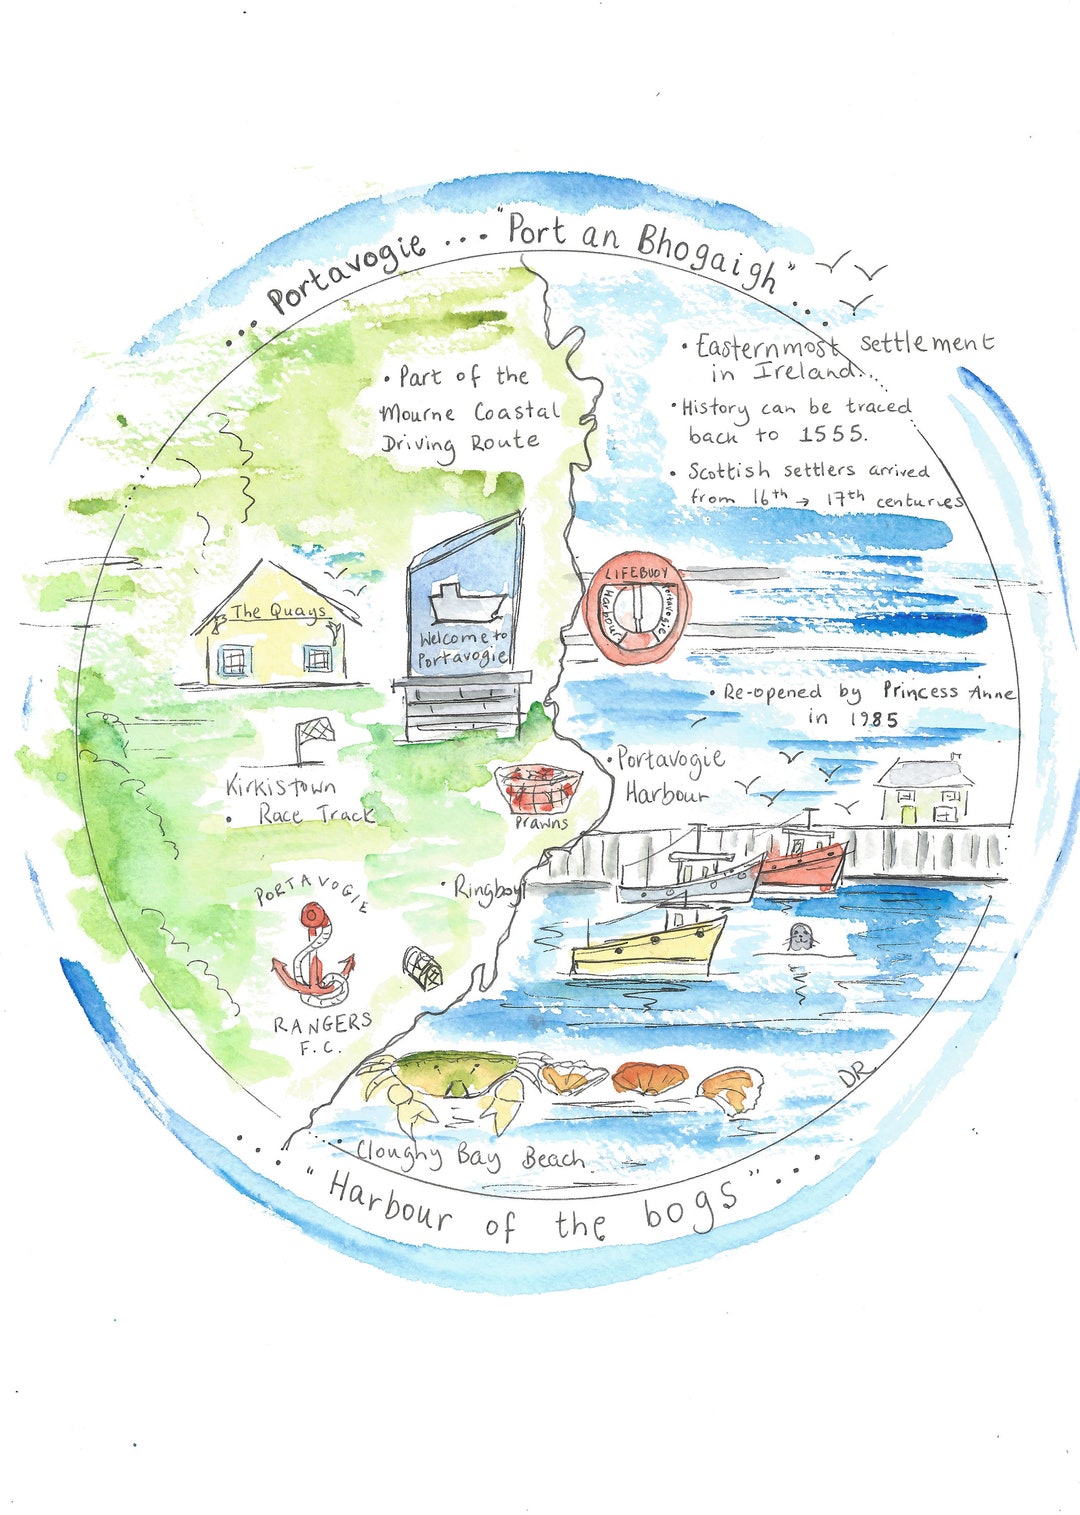 ... Portavogie ... "Port an Bhogaigh" ...
• Easternmost settlement
in Ireland...
• Part of the
Mourne Coastal
Driving Route
• History can be traced
back to 1555.
• Scottish settlers arrived
from 16th → 17th centuries
LIFEBUOY
Portavogie
Harbour
The Quays
Welcome to
Portavogie
• Re-opened by Princess Anne
in 1985
• Portavogie
Harbour
Kirkistown
• Race Track
Prawns
• Ringboy
PORTAVOGIE
RANGERS
F.C.
DR
• Cloughy Bay Beach
... "Harbour of the bogs" ...